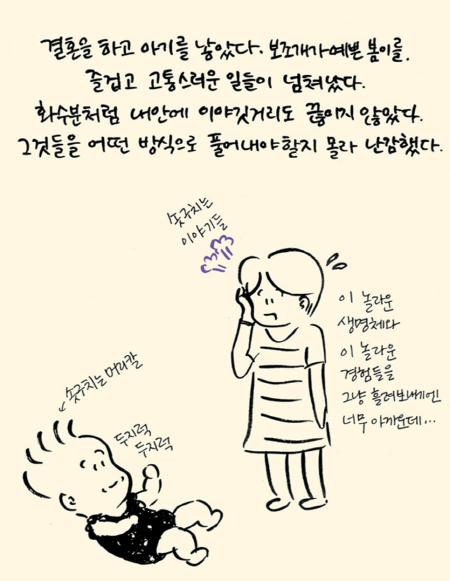 결혼을 하고 아기를 낳았다. 보조개가 예쁜 봄이를.
즐겁고 고통스러운 일들이 넘쳐났다.
화수분처럼 내안에 이야깃거리도 끊이지 않았다.
그것들을 어떤 방식으로 풀어내야할지 몰라 난감했다.
솟구치는
이야기들
이 놀라운
생명체와
이 놀라운
경험들을
그냥 흘려보내기엔
너무 아까운데...
솟구치는 머리칼
두지럭
두지럭